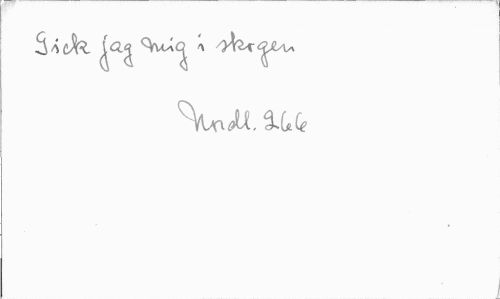 Gick jag mig i skogen
Nordl. 266